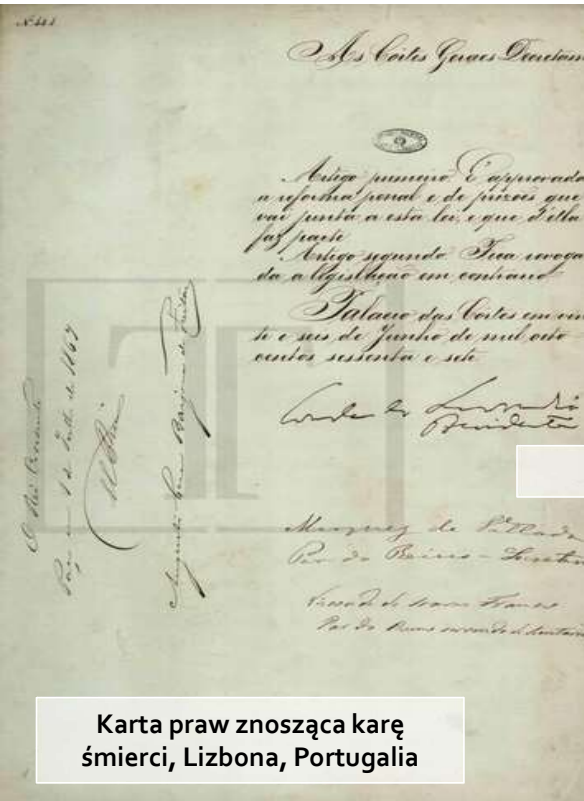 As Côrtes Geraes Decretam
Artigo primeiro É approvada
a reforma penal e de prizões que
vai junta a esta lei, e que d'ella
faz parte
Artigo segundo Fica revoga
da a legislação em contrario
Palacio das Côrtes em vin
te e seis de Junho de mil oito
centos sessenta e sete
Conde de
Presidente
Marquez de
Par do Reino -
Par do Reino
O Rei
Paço em 1 de Julho de 1867
Augusto Cesar Barjona de Freitas
Karta praw znosząca karę
śmierci, Lizbona, Portugalia